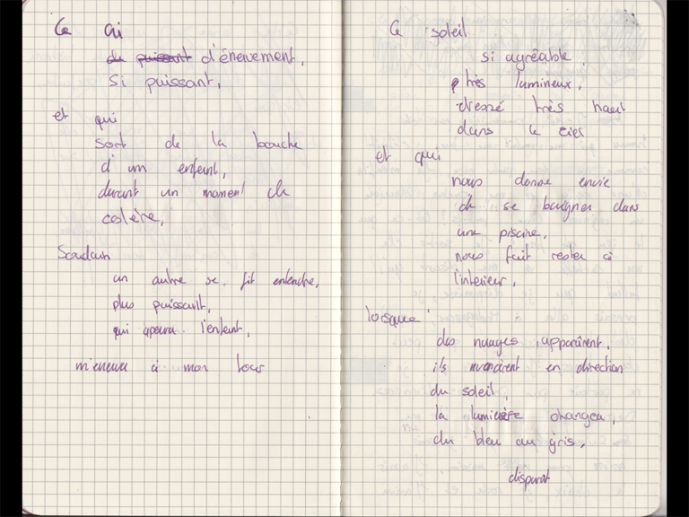 Ce cri
du puissant d'énervement,
si puissant,
et qui
sort de la bouche
d'un enfant,
durant un moment de
colère,
Soudain
un autre se fit entendre,
plus puissant,
qui apeura l'enfant,
à mon tour
Ce soleil
si agréable,
très lumineux,
dressé très haut
dans le ciel
et qui
nous donne envie
de se baigner dans
une piscine,
nous fait rester à
l'interieur,
lorsque
des nuages apparûrent,
ils avancèrent en direction
du soleil,
la lumière changea,
du bleu au gris,
disparut